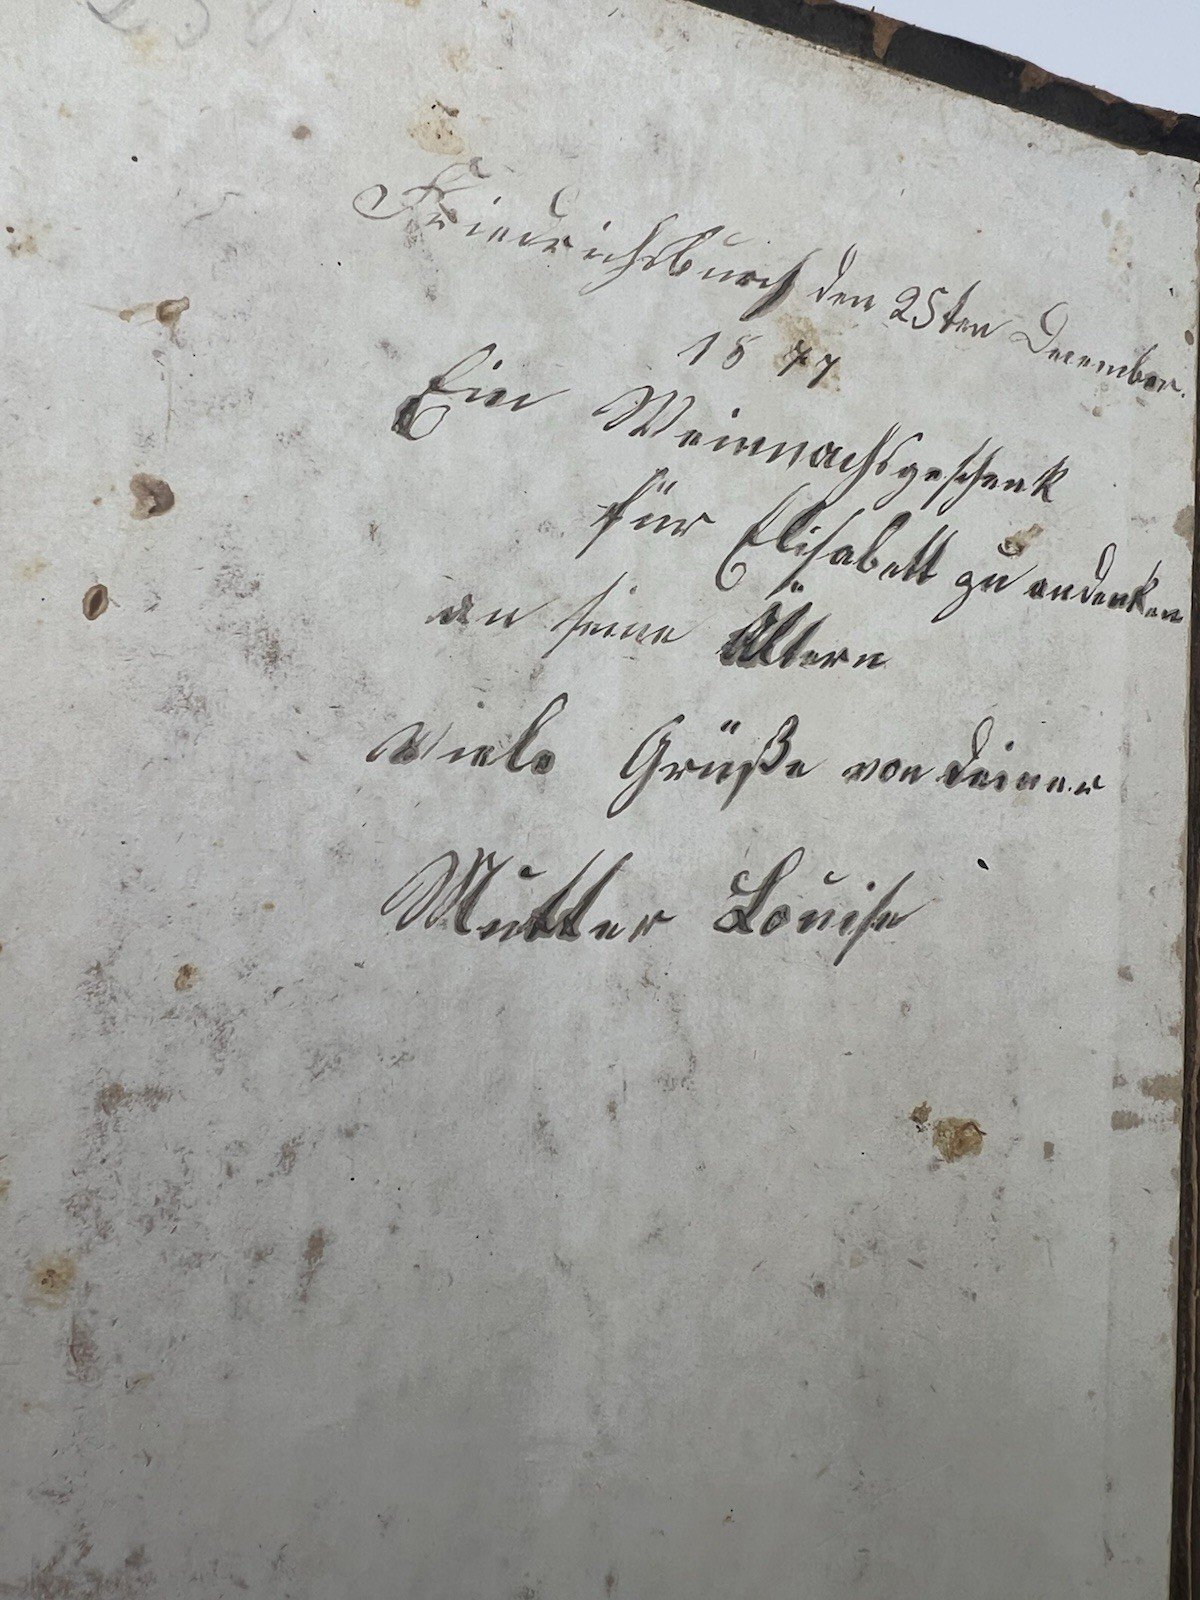 Friedrichsburch den 25ten December.
1877
Ein Weinnachsgeschenk
für Elisabett zu andenken
an seine Ältern
Viele Grüße von Deiner
Mutter Louise